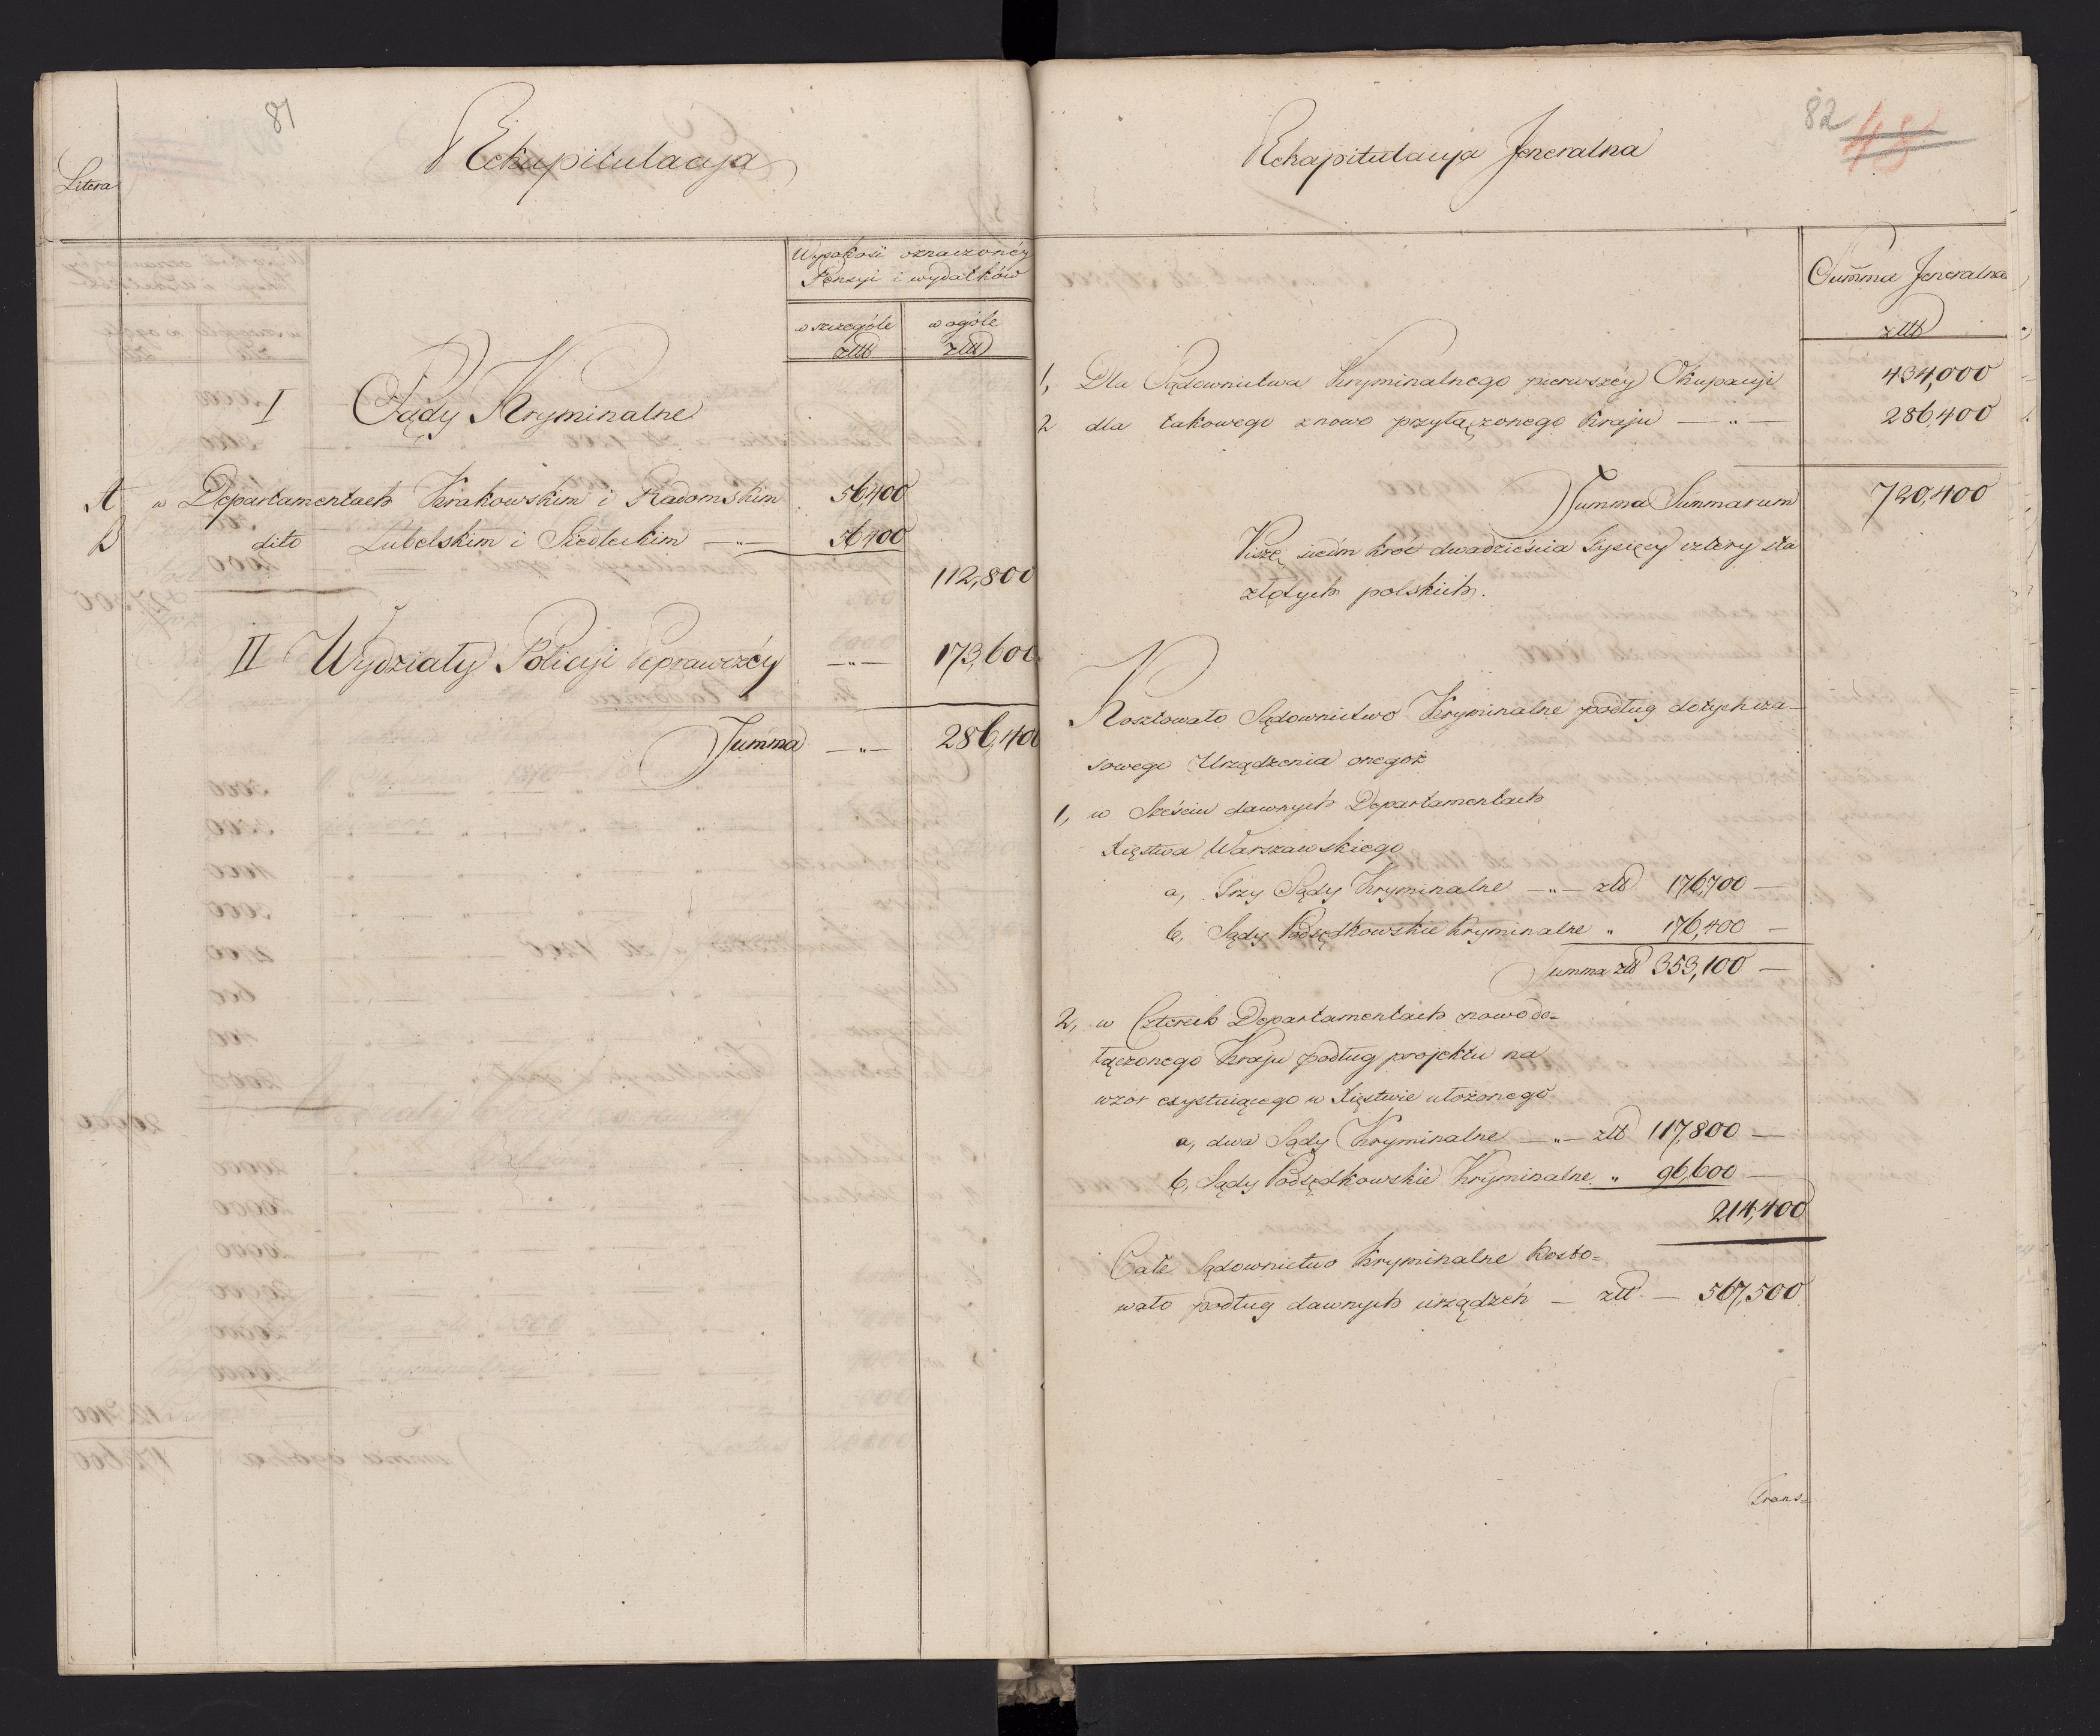 81
Rekapitulacyja
Litera
Wysokość oznaczonéy
Pensyi i wydatków
w szczególe
w ogóle
złtt
złtt
I Sądy Kryminalne
A w Departamentach Krakowskim i Radomskim 56,400
B dito Lubelskim i Siedleckim —"— 56,400
112,800
II Wydziały Policyi Poprawczéy —"— 173,600
Summa —"— 286,400
82
48
Rekapitulacyja Jeneralna
Summa Jeneralna
złtt
1, Dla Sądownictwa Kryminalnego pierwszéy Okupacyi 434,000
2 dla takowego znowo przyłączonego Kraju —"— 286,400
Summa Summarum 720,400
Piszę siedm kroć dwadzieścia tysięcy cztery sta
złotych polskich.
Kosztowało Sądownictwo Kryminalne podług dotychcza-
sowego Urządzenia onegoż
1, w Sześciu dawnych Departamentach
Xięstwa Warszawskiego
a, Trzy Sądy Kryminalne —"— złtt 176,700 —
b, Sądy Podsędkowskie Kryminalne " 176,400 —
Summa złtt 353,100 —
2, w Czterech Departamentach nowo do=
łączonego Kraju podług projektu na
wzór exystuiącego w Xięstwie ułożonego
a, dwa Sądy Kryminalne —"— złtt 117,800 —
b, Sądy Podsędkowskie Kryminalne " 96,600 —
214,400
Całe Sądownictwo Kryminalne koszto=
wało podług dawnych urządzeń — złtt — 567,500
Trans=